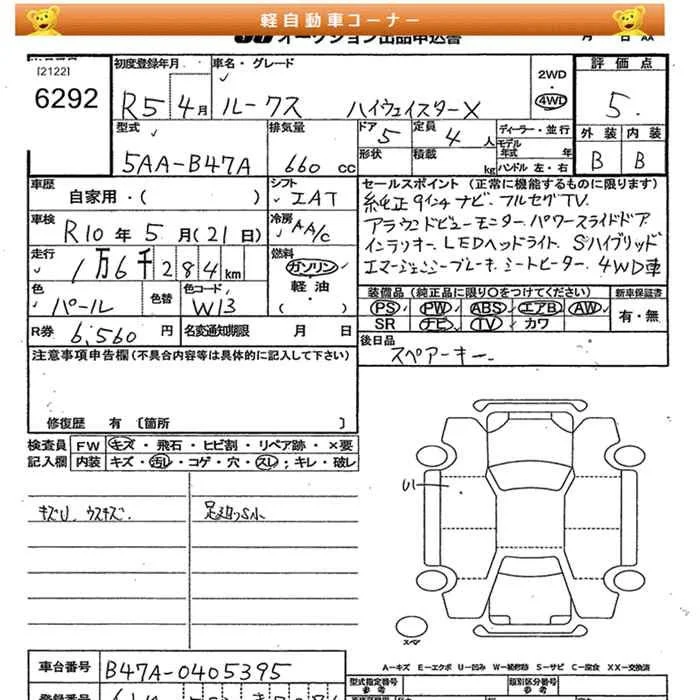 軽自動車コーナー
オークション出品申込書
月 日 AA
[2122]
6292
初度登録年月
R5 4月
車名・グレード
ルークス ハイウェイスターX
2WD
4WD
評価点
5.
型式
5AA-B47A
排気量
660 cc
ドア
5
形状
定員
4人
積載
kg
ディーラー・並行
モデル年式 年
ハンドル 左・右
外装 内装
B B
車歴
自家用・( )
シフト
IAT
車検
R10年5月(21日)
冷房
AA/C
走行
1万6千284km
燃料
ガソリン
軽油
・( )
色
パール
色替
色コード
W13
R券 6,560円
名変通知期限 月 日
セールスポイント (正常に機能するものに限ります)
純正9インチナビ.フルセグTV.
アラウンドビューモニター.パワースライドドア
インテリキー.LEDヘッドライト.Sハイブリッド
エマージェンシーブレーキ.シートヒーター.4WD車
装備品 (純正品に限り○をつけてください)
PS PW ABS エアB AW
SR ナビ TV カワ
新車保証書
有・無
後日品
スペアーキー.
注意事項申告欄(不具合内容等は具体的に記入して下さい)
修復歴 有 [箇所 ]
検査員記入欄
FW キズ・飛石・ヒビ割・リペア跡・×要
内装 キズ・汚レ・コゲ・穴・スレ;キレ・破レ
キズU.ウスキズ.
U1
スペア
A―キズ E―エクボ U―凹み W―補修跡 S―サビ C―腐食 XX―交換済
車台番号 B47A-0405395
登録番号
型式指定番号
参考
類別区分番号
参考